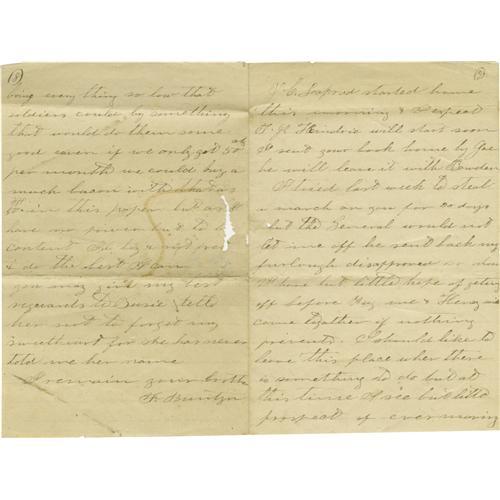 (8)
being every thing so low that
soldiers could by something
that would do them some
good even if we only got 50 cts
per month we could buy a
much bacon with that as
in this paper but as I
have no power but to be
content
& do the best I can
you may give my best
reguards to Susie & tell
her not to forget my
sweetheart for she has never
told me her name
I remain your brother
(5)
started home
this morning & I expect
T. J. Hendrix will start soon
I sent your book home by Joe
he will leave it with
I tried last week to steal
a march on you for 20 days
but the General would not
let me off he sent back my
furlough disapproved so now
I have but little hope of geting
off before Aug me & Henry will
come together if nothing
prevents. I should like to
leave this place wher there
is something to do but at
this time I see but little
prospect of ever moving